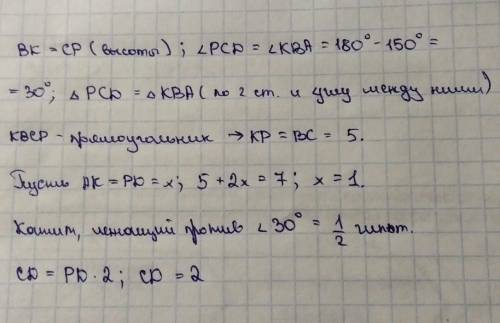 BK = CP (высоты); ∠PCD = ∠KBA = 180° - 150° =
= 30°; △ PCD = △ KBA (по 2 ст. и углу между ними)
KBCP - прямоугольник → KP = BC = 5.
Пусть AK = PD = x; 5 + 2x = 7; x = 1.
Катет, лежащий против ∠ 30° = 1/2 гипот.
CD = PD · 2; CD = 2